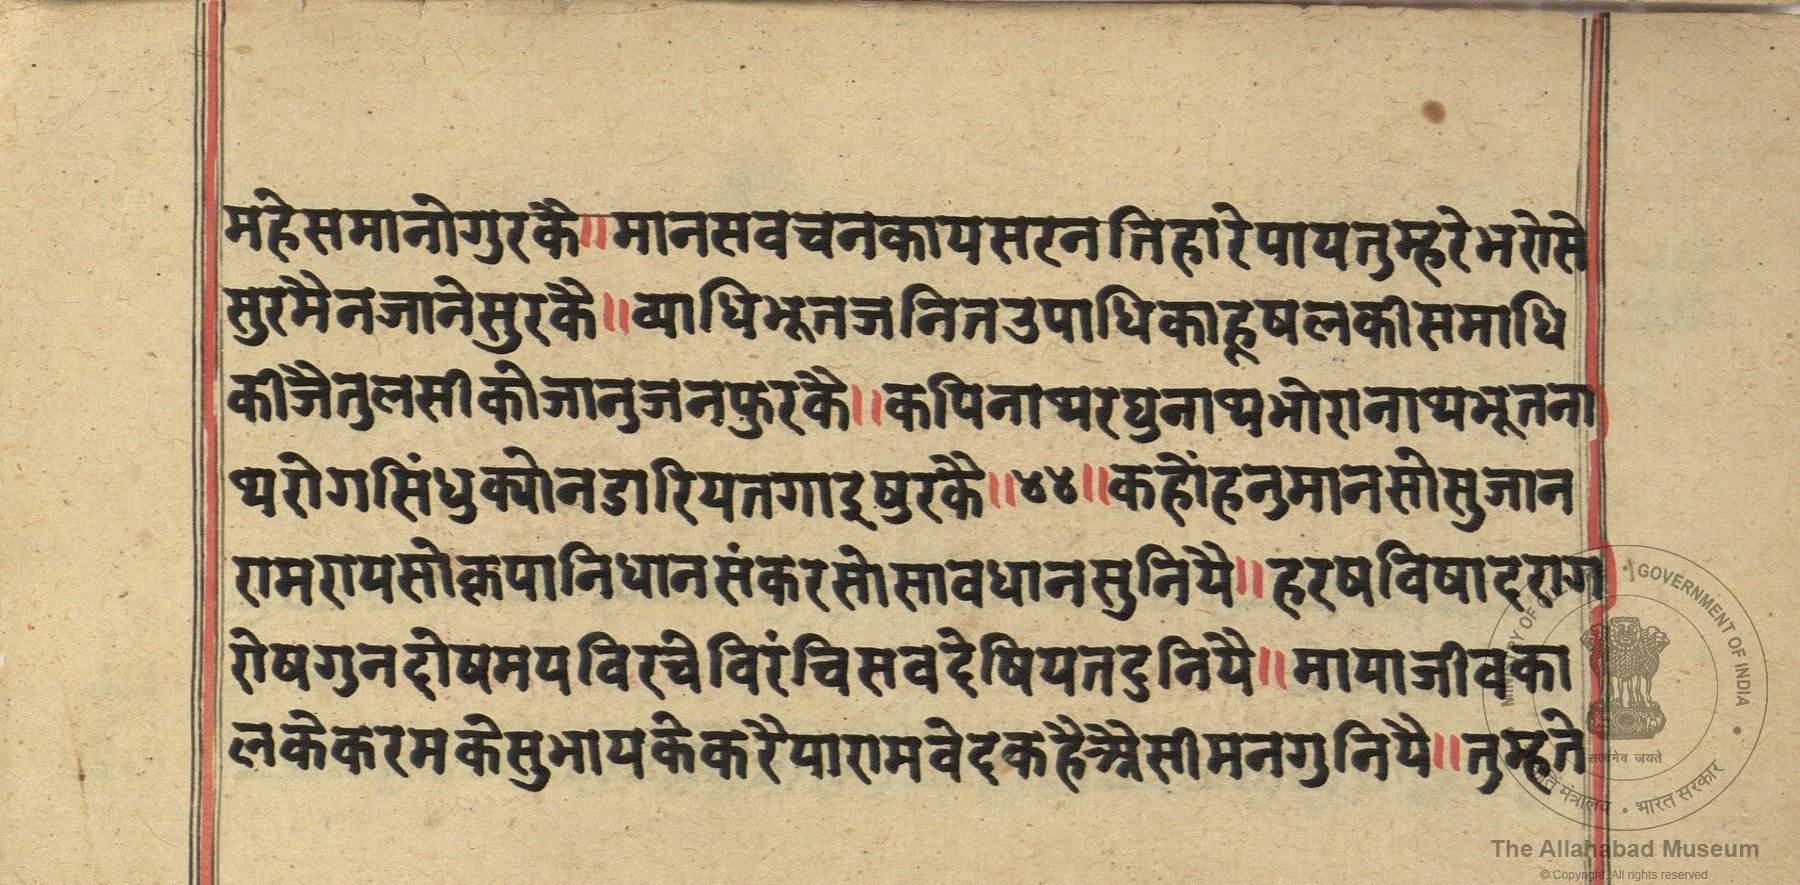 महेसमानोगुरकै॥मानसवचनकायसरनतिहारेपायतुम्हरेभरोसे
सुरमैनजानेसुरकै॥व्याधिभूतजनितउपाधिकाहूषलकीसमाधि
कीजैतुलसीकोजानुजनफुरकै॥कपिनाथरघुनाथभोरानाथभूतना
थरोगसिंधुक्योनडारियतगाइषुरकै॥४४॥कहौंहनुमानसोसुजान
रामरायसोकृपानिधानसंकरसोसावधानसुनियै॥हरषविषादराग
रोषगुनदोषमयविरचेविरंचिसवदेषियतदुनियै॥मायाजीवका
लकेकरमकेसुभायकेकरैयारामवेदकहैअैसीमनगुनियै॥तुम्हते
MINISTRY OF CULTURE • GOVERNMENT OF INDIA •
सत्यमेव जयते
संस्कृति मंत्रालय • भारत सरकार
The Allahabad Museum
© Copyright. All rights reserved.